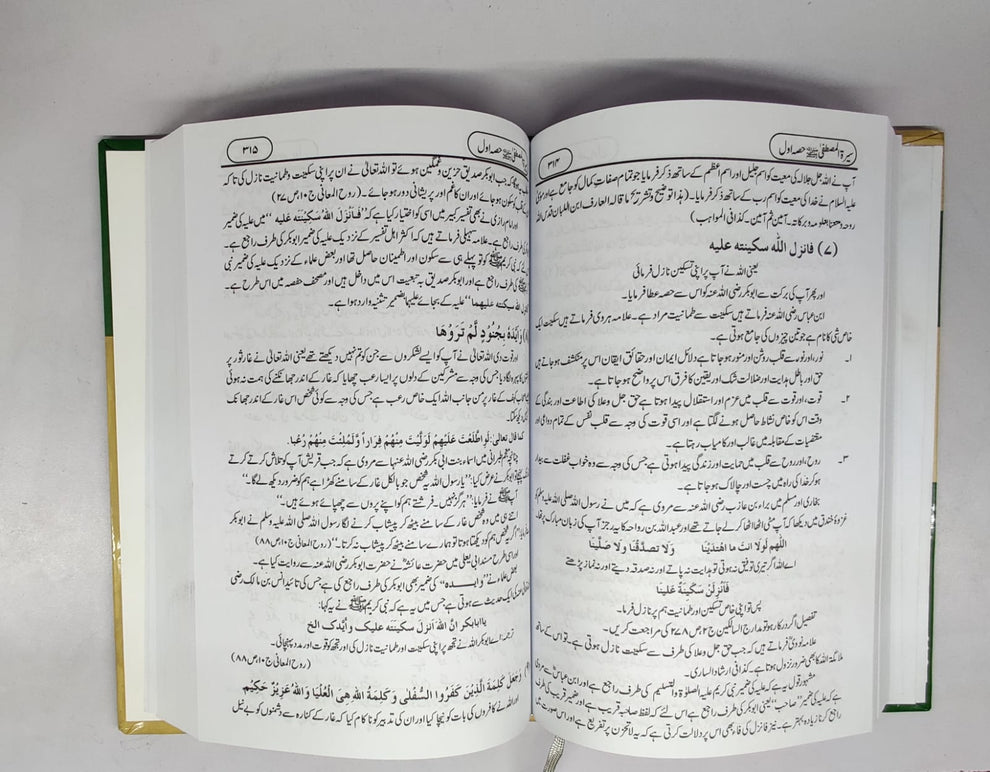 سیرۃ المصطفیٰ ﷺ حصہ اول
۳۱۴
آپ نے اللہ جل جلالہ کی معیت کو اسم جلیل اور اسم اعظم کے ساتھ ذکر فرمایا جو تمام صفات کمال کو جامع ہے اور موسیٰ
علیہ السلام نے خدا کی معیت کو اسم رب کے ساتھ ذکر فرمایا۔ (ہذا توضیح و تشریح ما قالہ العارف ابن اللبان قدس اللہ
روحہ وبرکاتہ۔ آمین ثم آمین۔ کذافی المواہب)
(۷) فانزل اللّٰہ سکینتہ علیہ
یعنی اللہ نے آپ پر اپنی تسکین نازل فرمائی
اور پھر آپ کی برکت سے ابوبکر رضی اللہ عنہ کو اس سے حصہ عطا فرمایا۔
ابن عباس رضی اللہ عنہ فرماتے ہیں سکینت سے طمانیت مراد ہے۔ علامہ ہروی فرماتے ہیں سکینت ایک
خاص شی کا نام ہے جو تین چیزوں کی جامع ہوتی ہے۔
۱۔ نور، اور نور سے قلب روشن اور منور ہو جاتا ہے دلائل ایمان اور حقائق ایقان اس پر منکشف ہو جاتے ہیں
حق اور باطل ہدایت اور ضلالت شک اور یقین کا فرق اس پر واضح ہو جاتا ہے۔
۲۔ قوت، اور قوت سے قلب میں عزم اور استقلال پیدا ہوتا ہے حق جل و علا کی اطاعت اور بندگی کے
وقت اس کو خاص نشاط حاصل ہونے لگتا ہے اور اسی قوت کی وجہ سے قلب نفس کے تمام دواعی اور
مقتضیات کے مقابلہ میں غالب اور کامیاب رہتا ہے۔
۳۔ روح، اور روح سے قلب میں حمایت اور زندگی پیدا ہوتی ہے جس کی وجہ سے وہ خواب غفلت سے بیدار
ہو کر خدا کی راہ میں چست اور چالاک ہو جاتا ہے۔
بخاری اور مسلم میں براء بن عازب رضی اللہ عنہ سے مروی ہے کہ میں نے رسول اللہ صلی اللہ علیہ وسلم کو
غزوۂ خندق میں دیکھا کہ آپ مٹی اٹھا اٹھا کر لے جاتے تھے اور عبداللہ بن رواحہ کا یہ رجز آپ کی زبان مبارک پر تھا۔
اللھم لولا انت ما اھتدینا ولا تصدقنا ولا صلینا
اے اللہ اگر تیری توفیق نہ ہوتی تو ہدایت نہ پاتے اور نہ صدقہ دیتے اور نہ نماز پڑھتے
فَاَنْزِلَنْ سَکِیْنَۃً عَلَیْنَا
پس تو اپنی خاص تسکین اور طمانیت ہم پر نازل فرما۔
تفصیل اگر درکار ہو تو مدارج السالکین ج ۲ ص ۲۷۸ کی مراجعت کریں۔
علامہ نووی فرماتے ہیں کہ جب حق جل و علا کی طرف سے سکینت نازل ہوتی ہے۔ تو اس کے ساتھ
ملائکۃ اللہ کا بھی ضرور نزول ہوتا ہے۔ کذافی ارشاد الساری۔
مشہور قول یہ ہے کہ علیہ کی ضمیر نبی کریم علیہ الصلوٰۃ والتسلیم کی طرف راجع ہے اور ابن عباس سے مروی
ہے کہ علیہ کی ضمیر ”صاحب“ یعنی ابوبکر کی طرف راجع ہے اس لئے کہ لفظ صاحب قریب ہے اور ضمیر قریب کی طرف
راجع کرنا زیادہ بہتر ہے۔ نیز فانزل کی فاء بھی اس پر دلالت کرتی ہے کہ یہ لا تحزن پر تفریع ہے اور اس صورت میں
حصہ اول
۳۱۵
کہ جب ابوبکر صدیق حزین و غمگین ہوئے تو اللہ تعالیٰ نے ان پر اپنی سکینت و طمانیت نازل کی تاکہ
سکون ہو جائے اور ان کا غم اور پریشانی دور ہو جائے۔ (روح المعانی ج ۱۰ ص ۸۷)
اور امام رازی نے بھی تفسیر کبیر میں اسی کو اختیار کیا ہے کہ ”فَاَنْزَلَ اللّٰہُ سَکِیْنَتَہ علیہ“ میں علیہ کی ضمیر
کی طرف راجع ہے۔ علامہ سہیلی فرماتے ہیں کہ اکثر اہل تفسیر کے نزدیک علیہ کی ضمیر ابوبکر کی طرف راجع ہے۔
کہ نبی کریم ﷺ کو تو پہلے ہی سے سکون اور اطمینان حاصل تھا اور بعض علماء کے نزدیک علیہ کی ضمیر نبی
کی طرف راجع ہے اور ابوبکر صدیق بہ تبعیت اس میں داخل ہیں اور مصحف حفصہ میں اس طرح ہے۔
اللہ سکینتہ علیھما“ علیہ کے بجائے علیہما بضمیر تثنیہ وارد ہوا ہے۔
وَاَیَّدَہٗ بِجُنُوْدٍ لَّمْ تَرَوْھَا
اور قوت دی اللہ تعالیٰ نے آپ کو ایسے لشکروں سے جن کو تم نہیں دیکھتے تھے یعنی اللہ تعالیٰ نے غار ثور پر
کا پہرہ لگا دیا جس کی وجہ سے مشرکین کے دلوں پر ایسا رعب چھایا کہ غار کے اندر جھانکنے کی ہمت نہ ہوئی
کہف کے غار پر من جانب اللہ ایک خاص رعب ہے جس کی وجہ سے کوئی شخص اس غار کے اندر جھانک
کما قال تعالیٰ: لَوِ اطَّلَعْتَ عَلَیْھِمْ لَوَلَّیْتَ مِنْھُمْ فِرَاراً وَّلَمُلِئْتَ مِنْھُمْ رُعْبا۔
چنانچہ معجم طبرانی میں اسماء بنت ابی بکر رضی اللہ عنہا سے مروی ہے کہ جب قریش آپ کو تلاش کرتے کرتے
ابوبکر نے عرض کیا: ”یا رسول اللہ یہ شخص جو بالکل غار کے سامنے کھڑا ہے ہم کو ضرور دیکھ لے گا۔“
آپ ﷺ نے فرمایا ”ہرگز نہیں۔ فرشتے ہم کو اپنے پروں سے چھپائے ہوئے ہیں۔“
اتنے ہی میں وہ شخص غار کے سامنے بیٹھ کر پیشاب کرنے لگا رسول اللہ صلی اللہ علیہ وسلم نے ابوبکر
”اگر یہ شخص ہم کو دیکھتا ہوتا تو ہمارے سامنے بیٹھ کر پیشاب نہ کرتا۔“ (روح المعانی ج ۱۰ ص ۸۸)
اور اسی طرح مسند ابی یعلی میں حضرت عائشہ نے حضرت ابوبکر رضی اللہ عنہ سے روایت کیا ہے۔
بعض علماء نے ”وایدہ“ کی ضمیر بھی ابوبکر کی طرف راجع کی ہے جس کی تائید انس بن مالک رضی
کی ایک حدیث سے ہوتی ہے جس میں یہ ہے کہ نبی کریم ﷺ نے یہ کہا:
یاابابکر انَّ اللہَ اَنزَل سکینتہ علیک وایّدک الخ
ترجمہ: اے ابوبکر اللہ نے تجھ پر اپنی سکینت اور طمانیت نازل کی اور تجھ کو قوت اور مدد پہنچائی۔
(روح المعانی ج ۱۰ ص ۸۸)
وَجَعَلَ کَلِمَۃَ الَّذِیْنَ کَفَرُوا السُّفْلٰی وَکَلِمَۃُ اللّٰہِ ھِیَ الْعُلْیَا وَاللّٰہُ عَزِیْزٌ حَکِیْم
اور اللہ نے کافروں کی بات کو نیچا کیا اور ان کی تدبیر کو ناکام کیا کہ غار کے کنارہ سے دشمنوں کو بے نیل